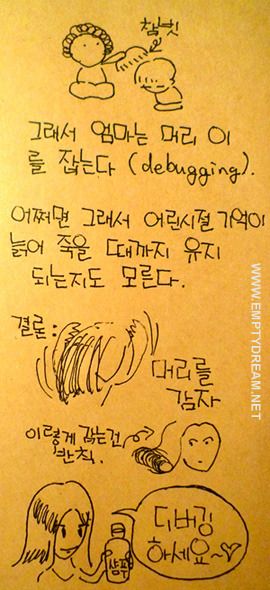 참빗
그래서 엄마는 머리 이
를 잡는다 (debugging).
어쩌면 그래서 어린시절 기억이
늙어 죽을 때까지 유지
되는지도 모른다.
결론:
머리를
감자
이렇게 감는건
반칙.
디버깅
하세요~
샴푸
WWW.EMPTYDREAM.NET